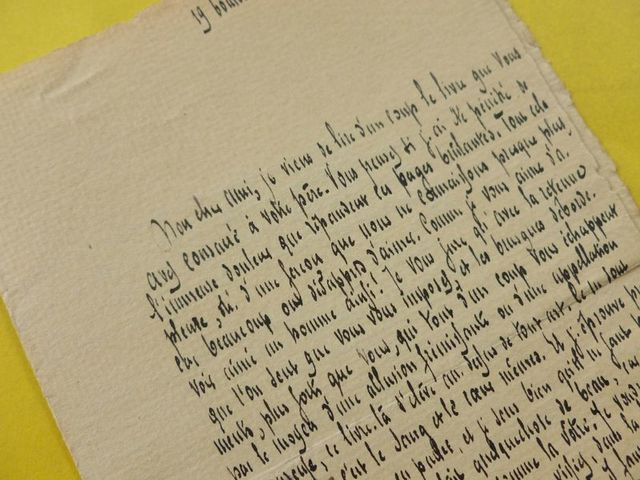 19 boul
Mon cher ami, je viens de lire d'un coup le livre que vous
avez consacré à votre père. Vous pensez si j'ai été pénétré de
l'immense douleur que répandent ces pages brûlantes. Tout cela
pleure, dit d'une façon que nous ne connaissons presque plus,
car beaucoup ont désappris d'aimer. Comme je vous aime d'a-
voir aimé un homme ainsi! Je vous jure qu'avec la retenue
que l'on sent que vous vous imposez et les brusques déborde-
ments, plus forts que vous, qui tout d'un coup vous échappent
par le moyen d'une allusion frémissante ou d'une appellation
ce livre-là s'élève au-dessus de tout art. Je tu
c'est le sang et le cœur mêmes. Et j'éprouve
et je sens bien qu'il me faut
quelque chose de beau.
comme la vôtre. Je vous
dans